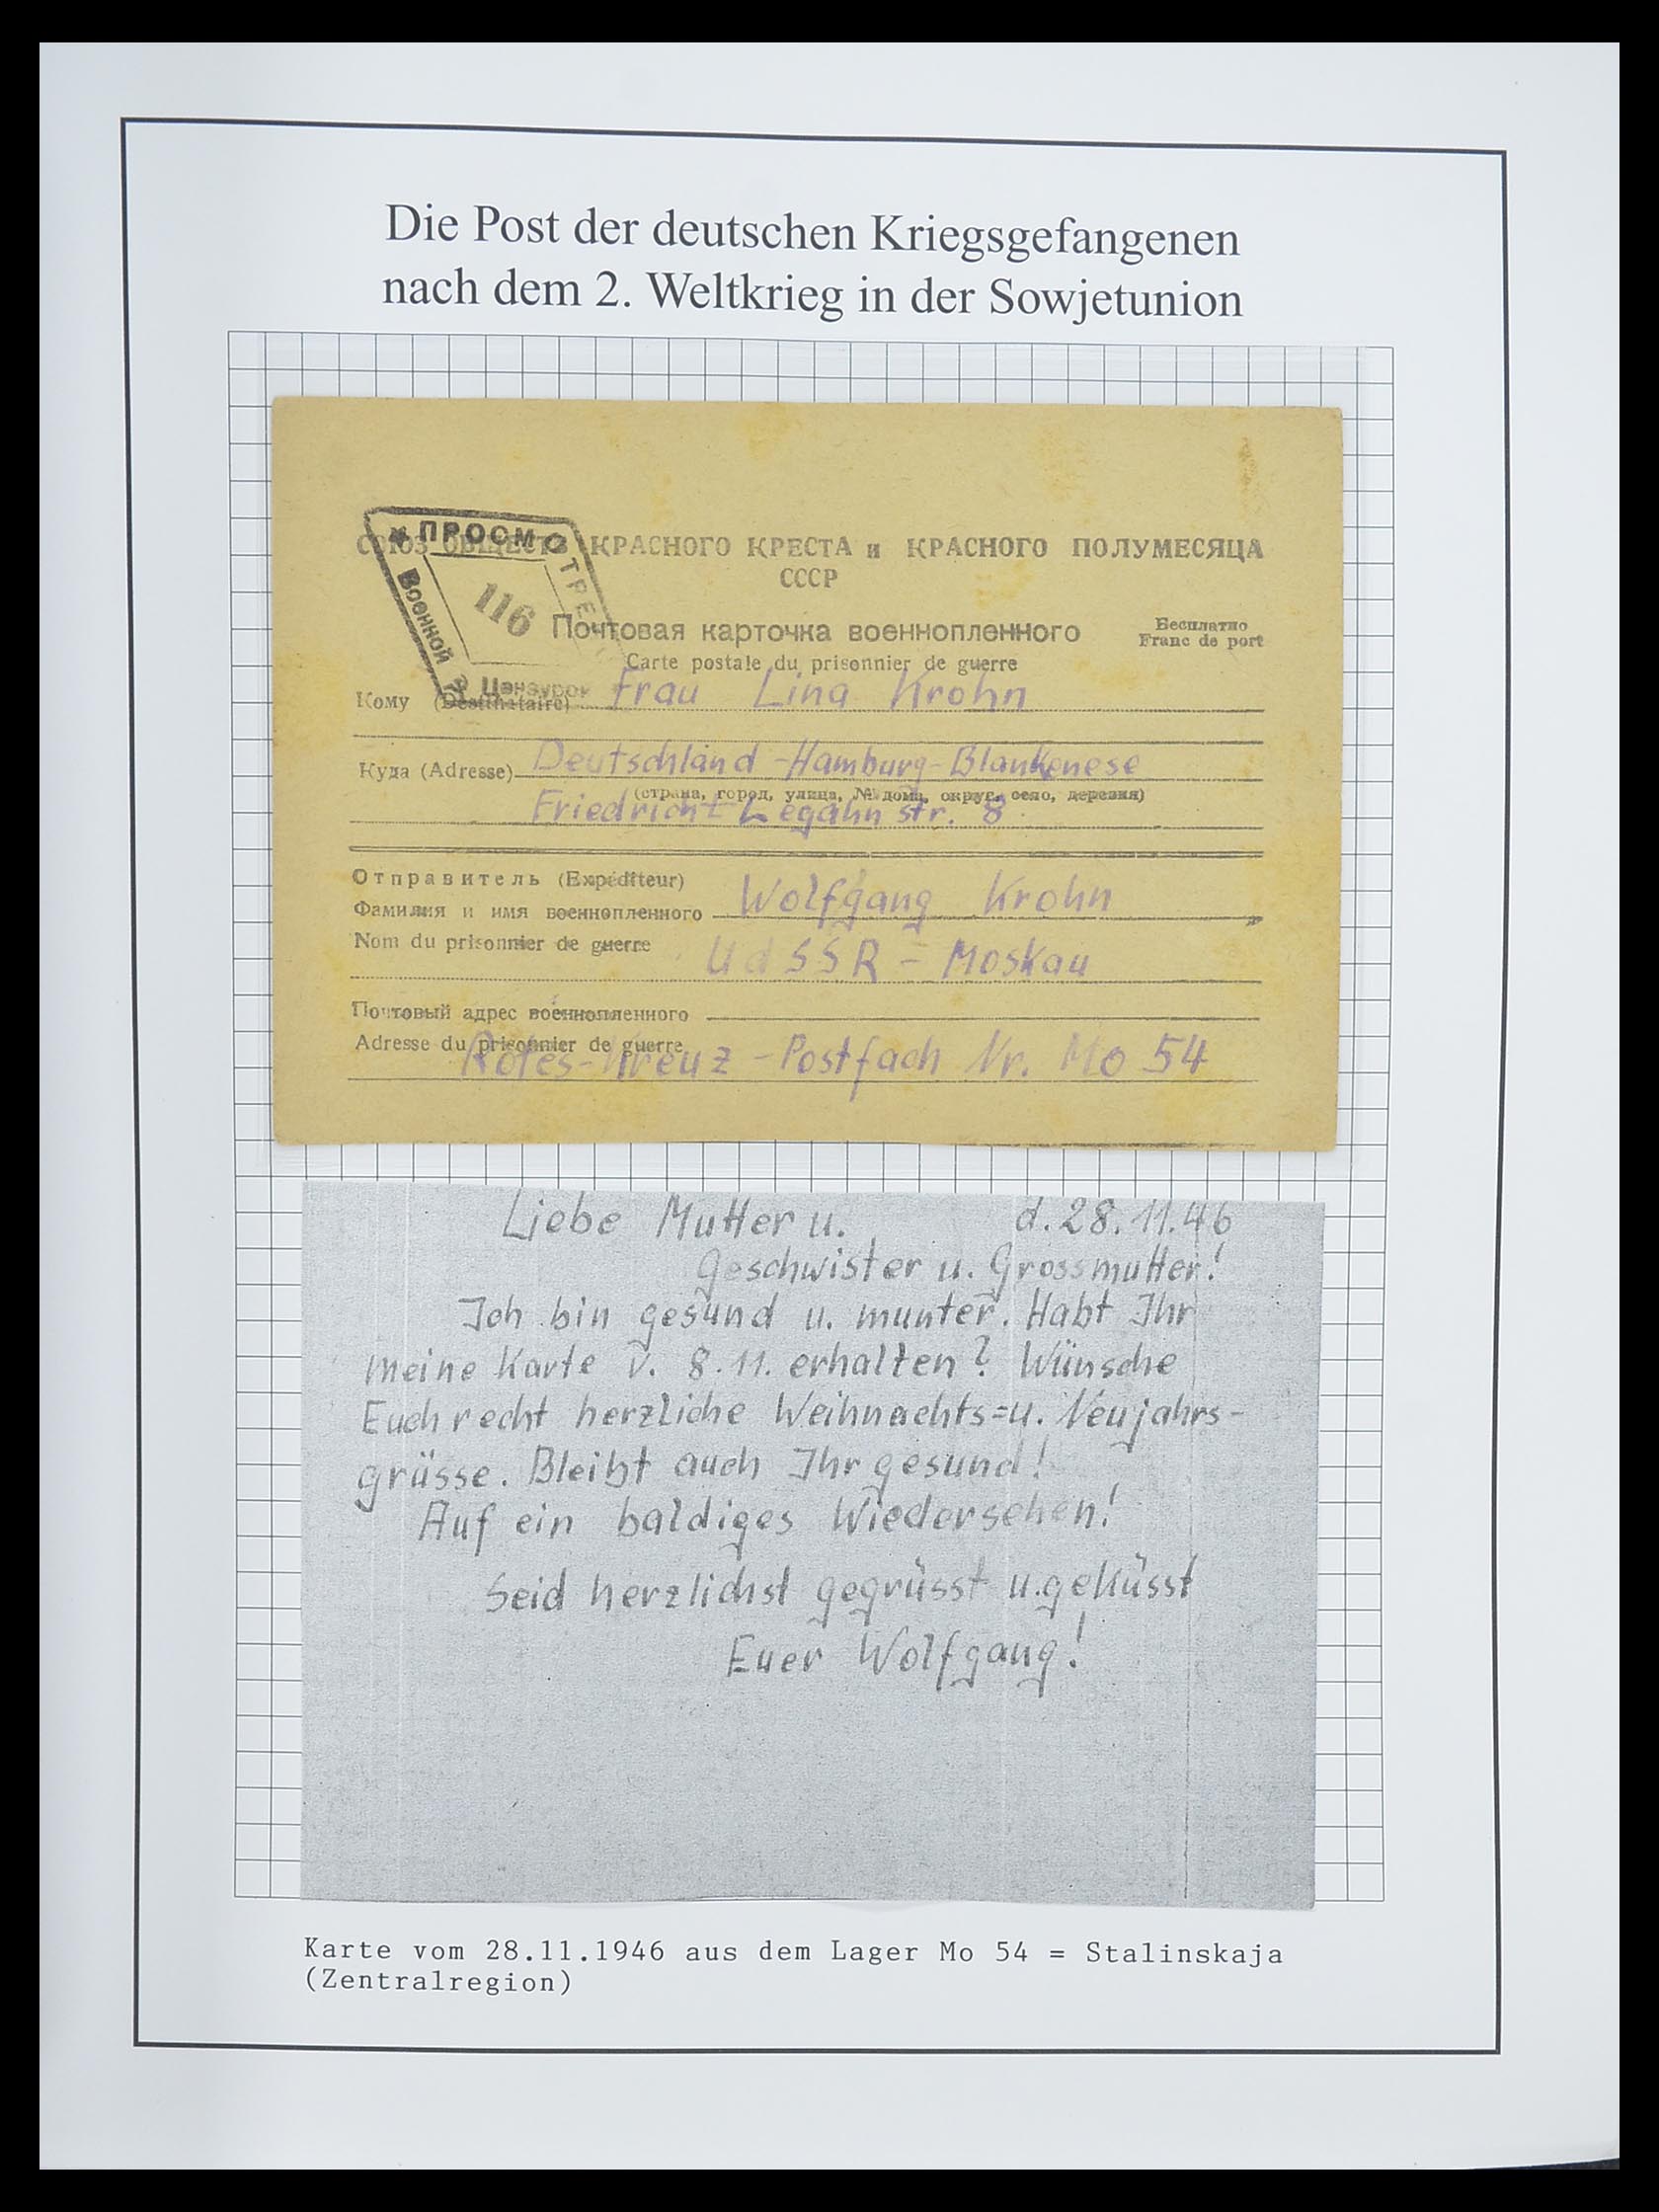 Die Post der deutschen Kriegsgefangenen
nach dem 2. Weltkrieg in der Sowjetunion
СОЮЗ ОБЩЕСТВ КРАСНОГО КРЕСТА и КРАСНОГО ПОЛУМЕСЯЦА
СССР
ПРОСМОТРЕ
Военной
Цензурой
116
Почтовая карточка военнопленного
Carte postale du prisonnier de guerre
Бесплатно
Franc de port
Кому (Destinataire) Frau Lina Krohn
Куда (Adresse) Deutschland-Hamburg-Blankenese
(страна, город, улица, № дома, округ, село, деревня)
Friedrich Legahn str. 8
Отправитель (Expéditeur)
Фамилия и имя военнопленного Wolfgang Krohn
Nom du prisonnier de guerre UdSSR - Moskau
Почтовый адрес военнопленного
Adresse du prisonnier de guerre Rotes-Kreuz-Postfach Nr. Mo 54
Liebe Mutter u. d. 28.11.46
Geschwister u. Grossmutter!
Ich bin gesund u. munter. Habt Ihr
meine Karte v. 8.11. erhalten? Wünsche
Euch recht herzliche Weihnachts=u. Neujahrs-
grüsse. Bleibt auch Ihr gesund!
Auf ein baldiges Wiedersehen!
Seid herzlichst gegrüsst u. geküsst
Euer Wolfgang!
Karte vom 28.11.1946 aus dem Lager Mo 54 = Stalinskaja
(Zentralregion)